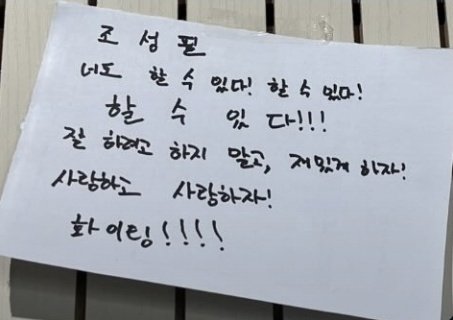 조성필
너도 할 수 있다! 할 수 있다!
할 수 있다!!!
잘 하려고 하지 말고, 재밌게 하자!
사랑하고 사랑하자!
화이팅!!!!